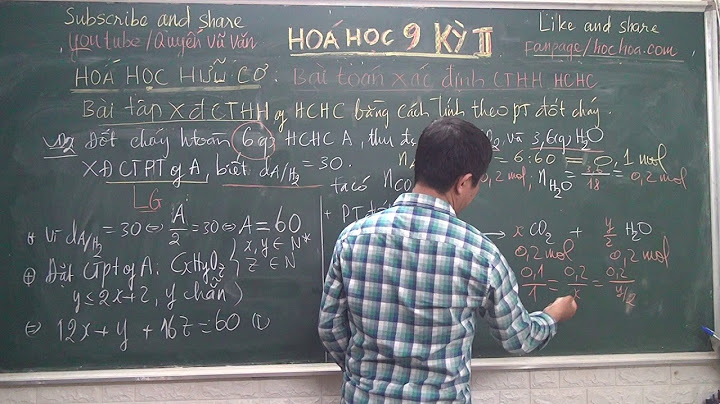 Subscribe and share
youtube/Quyến Vũ Văn
HOÁ HỌC 9 KỲ II
Like and share
Fanpage/hochoa.com
HOÁ HỌC HỮU CƠ: Bài toán xác định CTHH HCHC
Bài tập XĐ CTHH of HCHC bằng cách tính theo PT đốt cháy.
VD2 Đốt cháy htoàn 6(g) HCHC A, thu và 3,6(g) H₂O
XĐ CTPT of A, biết dA/H₂ = 30.
LG
+ Vì dA/H₂ = 30 ⇔ A/2 = 30 ⇔ A = 60
⊕ Đặt CTPT of A: CxHyOz { x, y ∈ N*
z ∈ N
y ≤ 2x+2, y chẵn
⇒ 12x + y + 16z = 60 (1)
= 6:60 = 0,1 mol
ta có nCO 0,2 mol, nH₂O = 3,6/18 = 0,2 mol
+ PT
→ x CO₂ + y/2 H₂O
0,2 mol 0,2 mol
0,1/1 = 0,2/x = 0,2/y/2